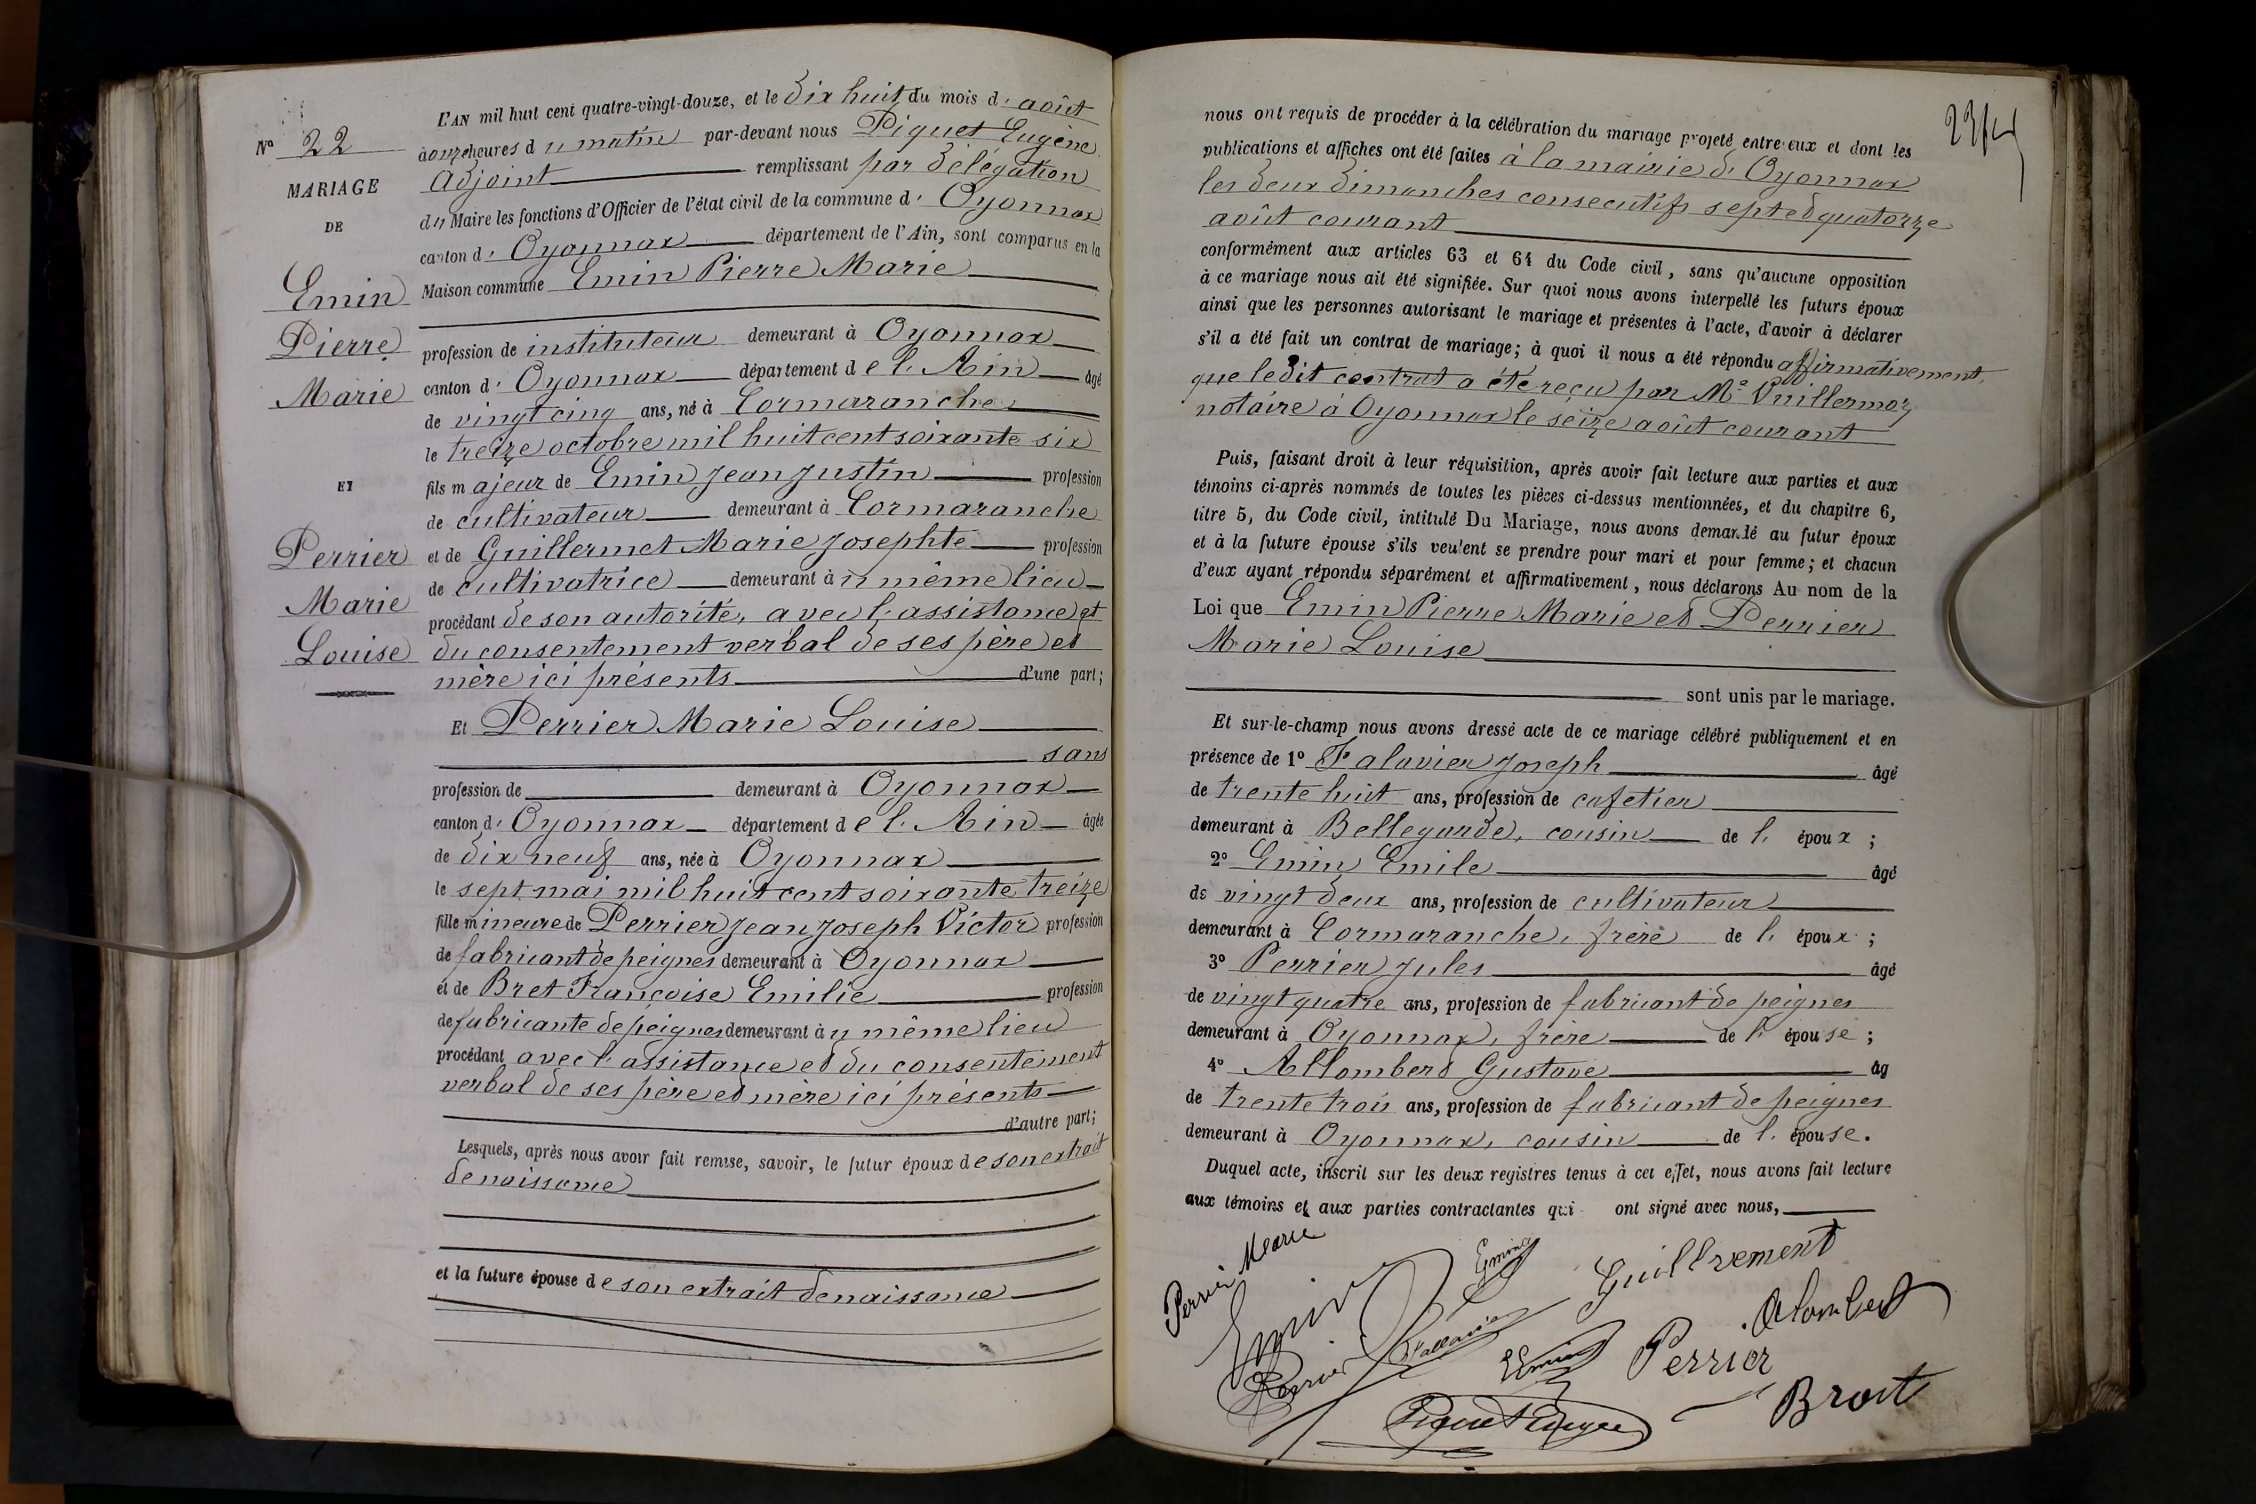 N° 22
MARIAGE
DE
Emin
Pierre
Marie
ET
Perrier
Marie
Louise
L'AN mil huit cent quatre-vingt-douze, et le dix huit du mois d' août
à onze heures du matin par-devant nous Piquet Eugène
Adjoint remplissant par délégation
du Maire les fonctions d'Officier de l'état civil de la commune d' Oyonnax
canton d' Oyonnax département de l'Ain, sont comparus en la
Maison commune Emin Pierre Marie
profession de instituteur demeurant à Oyonnax
canton d' Oyonnax département de l' Ain âgé
de vingt cinq ans, né à Cormaranche
le treize octobre mil huit cent soixante six
fils majeur de Emin Jean Justin profession
de cultivateur demeurant à Cormaranche
et de Guillermet Marie Josephte profession
de cultivatrice demeurant au même lieu
procédant de son autorité, avec l'assistance et
du consentement verbal de ses père et
mère ici présents d'une part;
Et Perrier Marie Louise
sans
profession de demeurant à Oyonnax
canton d' Oyonnax département de l' Ain âgée
de dix neuf ans, née à Oyonnax
le sept mai mil huit cent soixante treize
fille mineure de Perrier Jean Joseph Victor profession
de fabricant de peignes demeurant à Oyonnax
et de Bret Françoise Emilie profession
de fabricante de peignes demeurant au même lieu
procédant avec l'assistance et du consentement
verbal de ses père et mère ici présents
d'autre part;
Lesquels, après nous avoir fait remise, savoir, le futur époux de son extrait
de naissance
et la future épouse de son extrait de naissance
nous ont requis de procéder à la célébration du mariage projeté entre eux et dont les
publications et affiches ont été faites à la mairie d' Oyonnax
les deux dimanches consecutifs sept et quatorze
août courant
conformément aux articles 63 et 64 du Code civil, sans qu'aucune opposition
à ce mariage nous ait été signifiée. Sur quoi nous avons interpellé les futurs époux
ainsi que les personnes autorisant le mariage et présentes à l'acte, d'avoir à déclarer
s'il a été fait un contrat de mariage; à quoi il nous a été répondu affirmativement,
que ledit contrat a été reçu par Me Vuillermoz
notaire à Oyonnax le seize août courant
Puis, faisant droit à leur réquisition, après avoir fait lecture aux parties et aux
témoins ci-après nommés de toutes les pièces ci-dessus mentionnées, et du chapitre 6,
titre 5, du Code civil, intitulé Du Mariage, nous avons demandé au futur époux
et à la future épouse s'ils veulent se prendre pour mari et pour femme; et chacun
d'eux ayant répondu séparément et affirmativement, nous déclarons Au nom de la
Loi que Emin Pierre Marie et Perrier
Marie Louise
sont unis par le mariage.
Et sur-le-champ nous avons dressé acte de ce mariage célébré publiquement et en
présence de 1° Falavier Joseph âgé
de trente huit ans, profession de cafetier
demeurant à Bellegarde, cousin de l' époux;
2° Emin Emile âgé
de vingt deux ans, profession de cultivateur
demeurant à Cormaranche, frère de l' époux;
3° Perrier Jules âgé
de vingt quatre ans, profession de fabricant de peignes
demeurant à Oyonnax, frère de l' épouse;
4° Allombert Gustave âg
de trente trois ans, profession de fabricant de peignes
demeurant à Oyonnax, cousin de l' épouse.
Duquel acte, inscrit sur les deux registres tenus à cet effet, nous avons fait lecture
aux témoins et aux parties contractantes qui ont signé avec nous,
Perrier Marie
Emin
Emin
Guillrement
Perrier
Fallavier
Emin
Perrier
Alombert
Piquet Eugène
Broit